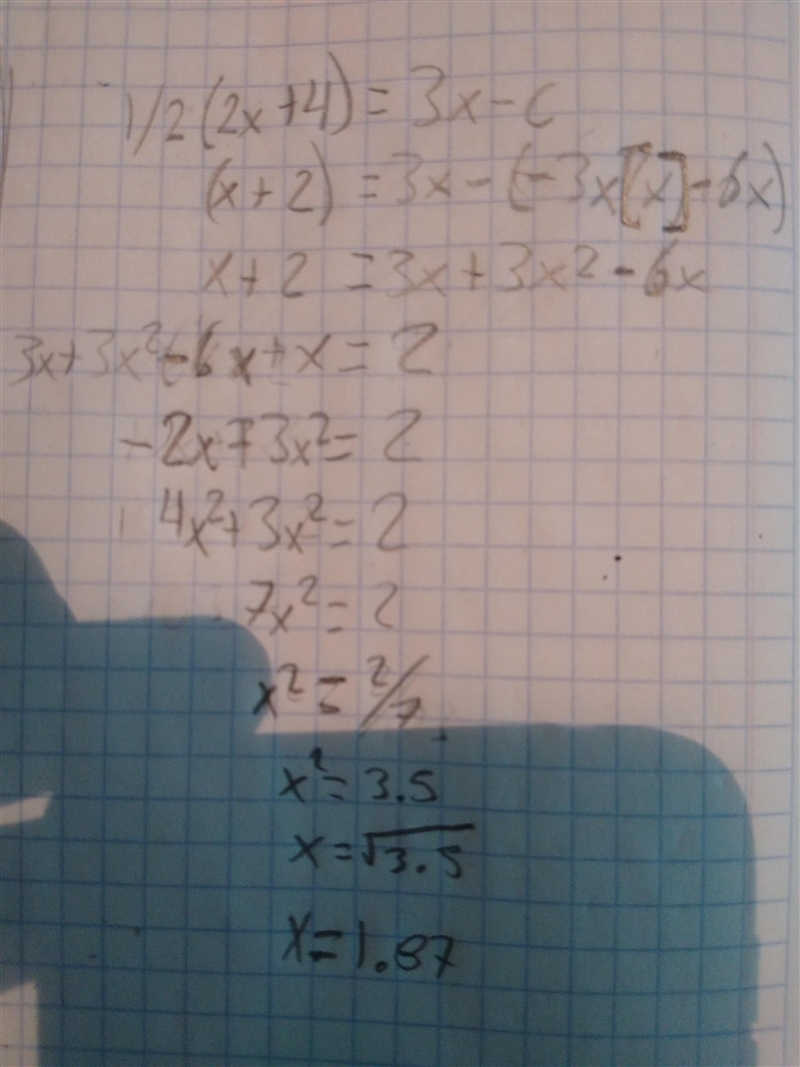 1/2(2x+4)=3x-c
(x+2)=3x-(-3x[x]-6x)
x+2=3x+3x²-6x
3x+3x²-6x+x=2
-2x+3x²=2
4x²+3x²=2
7x²=2
x²=2/7
x²=3.5
x=√3.5
x=1.87